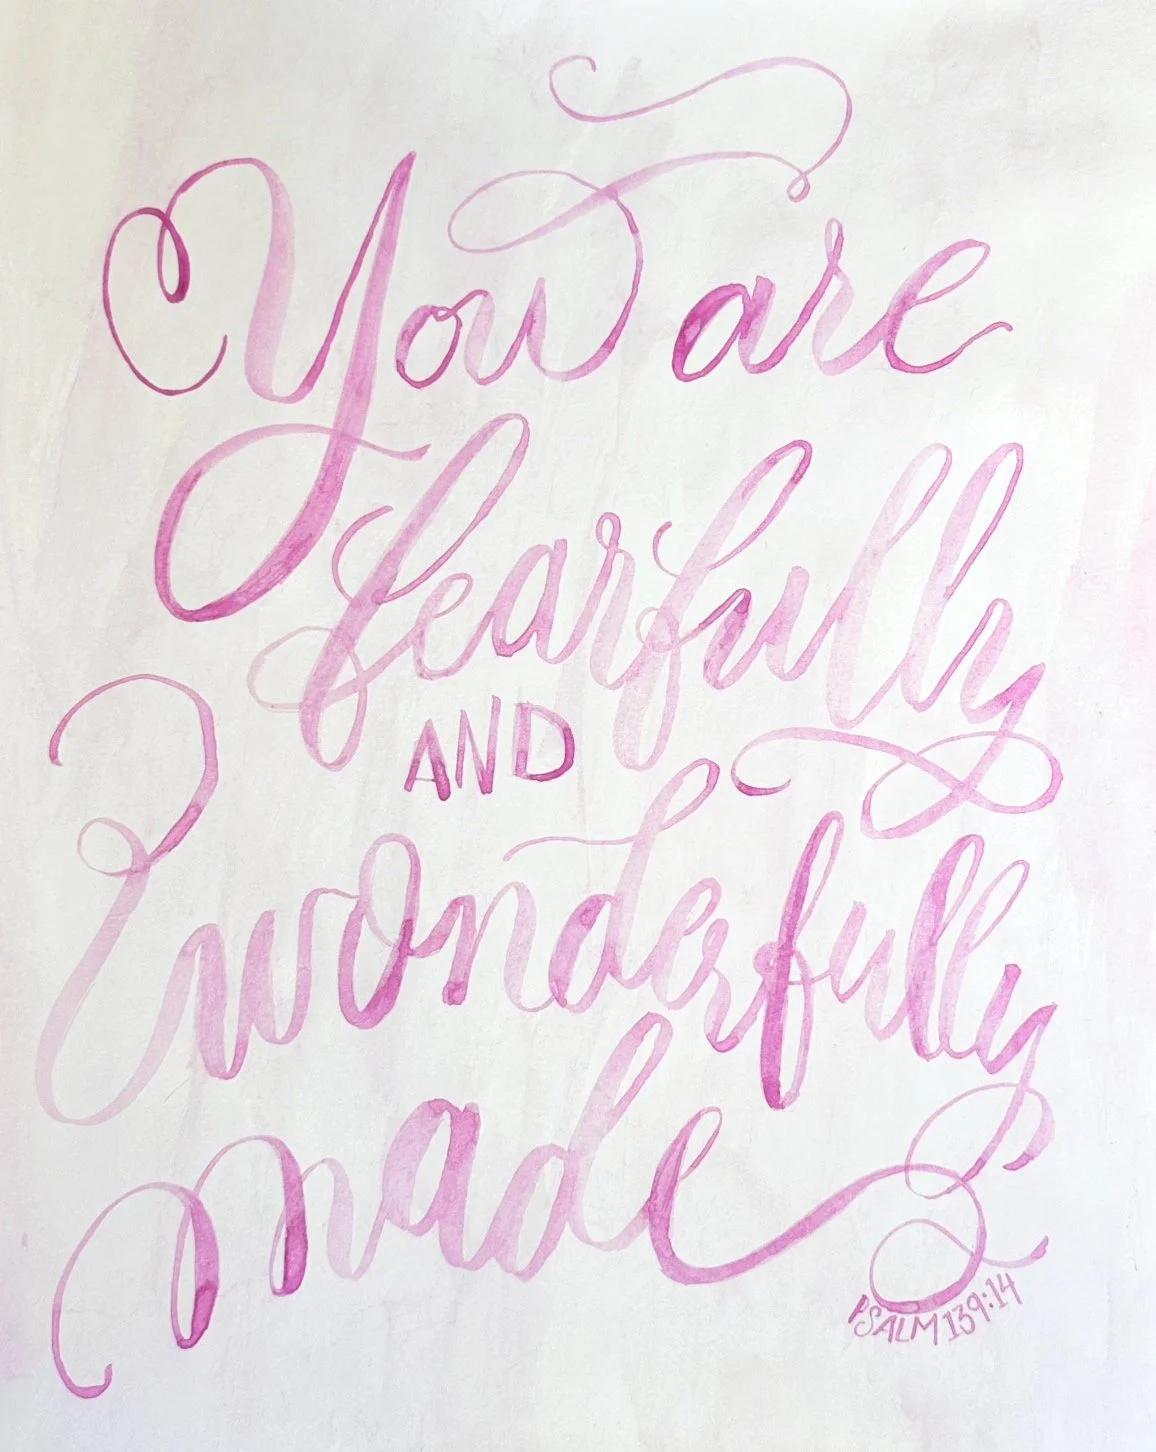 You are
fearfully
AND
wonderfully
made
PSALM 139:14